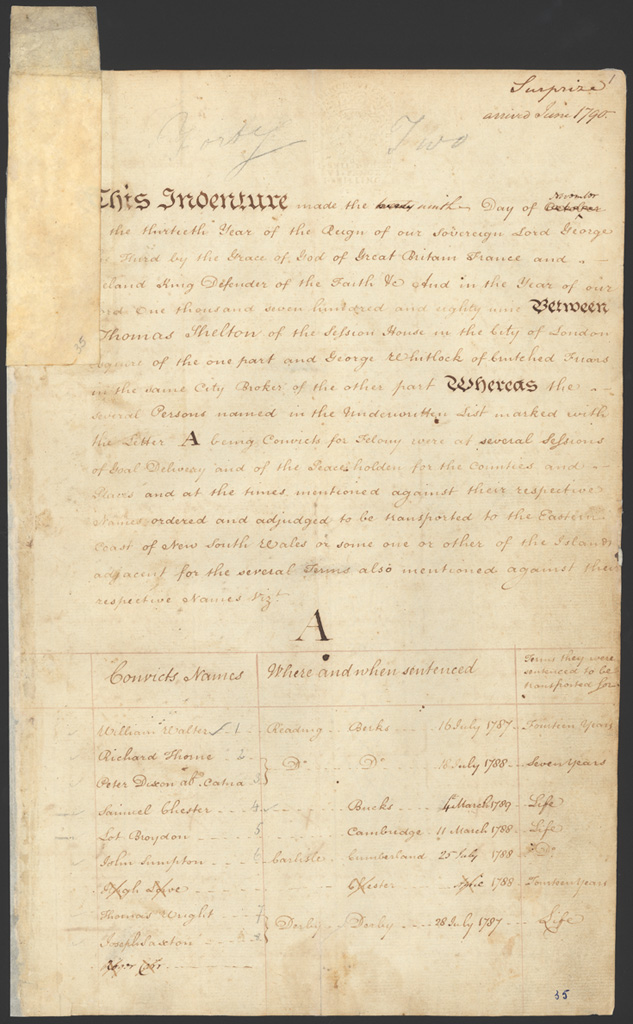 Surprize 1
arrived June 1790.
Forty Two
This Indenture made the twenty ninth Day of October November
the thirtieth Year of the Reign of our Sovereign Lord George
Third by the Grace of God of Great Britain France and
King Defender of the Faith &c And in the Year of our
One thousand seven hundred and eighty nine Between
Thomas Shelton of the Session House in the City of London
of the one part and George Whitlock of Crutched Friars
in the same City Broker of the other part Whereas the
several Persons named in the Underwritten List marked with
the Letter A being Convicts for Felony were at several Sessions
of Goal Delivery and of the Peace holden for the Counties and
Places and at the times mentioned against their respective
Names ordered and adjudged to be transported to the Eastern
Coast of New South Wales or some one or other of the Islands
adjacent for the several Terms also mentioned against their
respective Names Vizt.
A
Convicts Names Where and when sentenced Terms they were
sentenced to be
transported for
William Walter 1 Reading Berks 16 July 1787 Fourteen Years
Richard Thorne 2
Do. Do. July 1788 Seven Years
Peter Dixon als. Catna 3
Samuel Chester 4 Bucks 4 March 1789 Life
Lot Broydon 5 Cambridge 11 March 1788 Life
John Simpton 6 Carlisle Cumberland 25 July 1788 Do.
Hugh Lowe Chester 1788 Fourteen Years
Thomas Wright 7
Derby Derby 28 July 1787 Life
Joseph Saxton 8
35
35